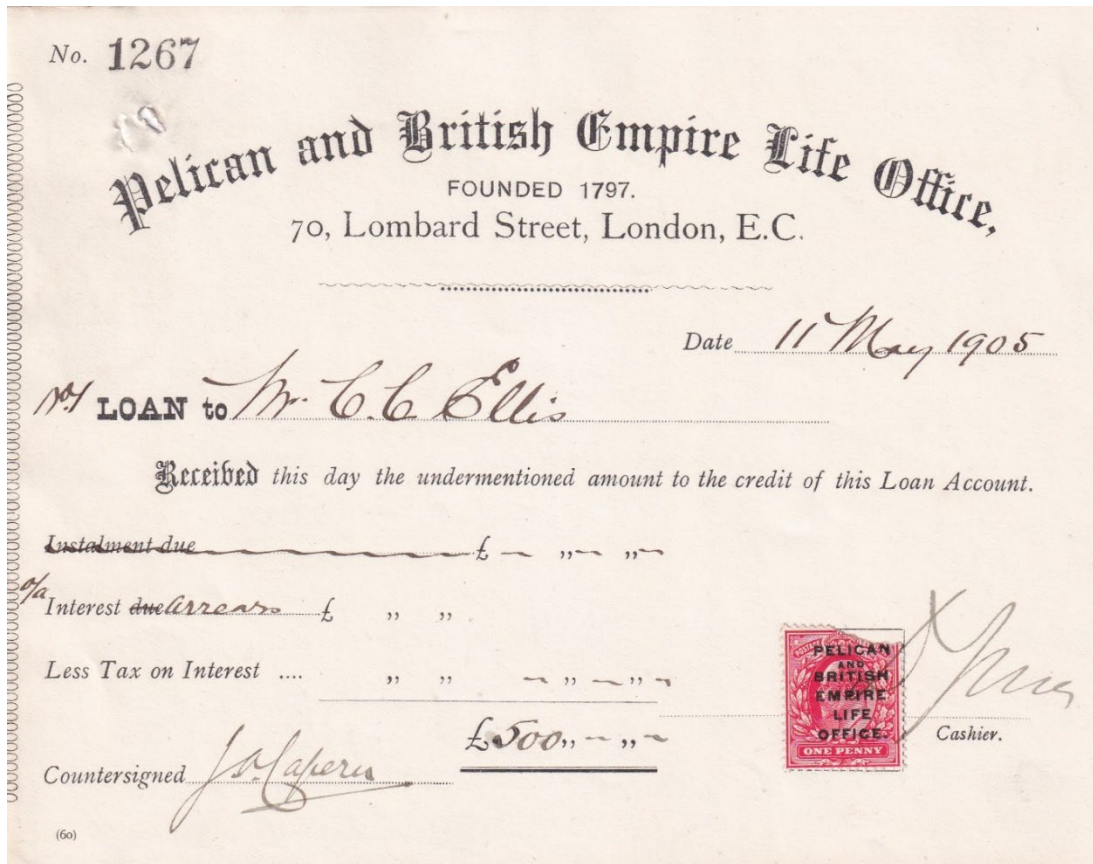 No. 1267
Pelican and British Empire Life Office,
FOUNDED 1797.
70, Lombard Street, London, E.C.
Date 11 May 1905
LOAN to Mr. C. C Ellis
Received this day the undermentioned amount to the credit of this Loan Account.
Instalment due £ – ,, – ,, –
o/a Interest due arrears £ ,, ,,
Less Tax on Interest .... ,, ,, – ,, – ,, –
£500 ,, – ,, –
POSTAGE
PELICAN
AND
BRITISH
EMPIRE
LIFE
OFFICE.
ONE PENNY
Cashier.
Countersigned
(60)